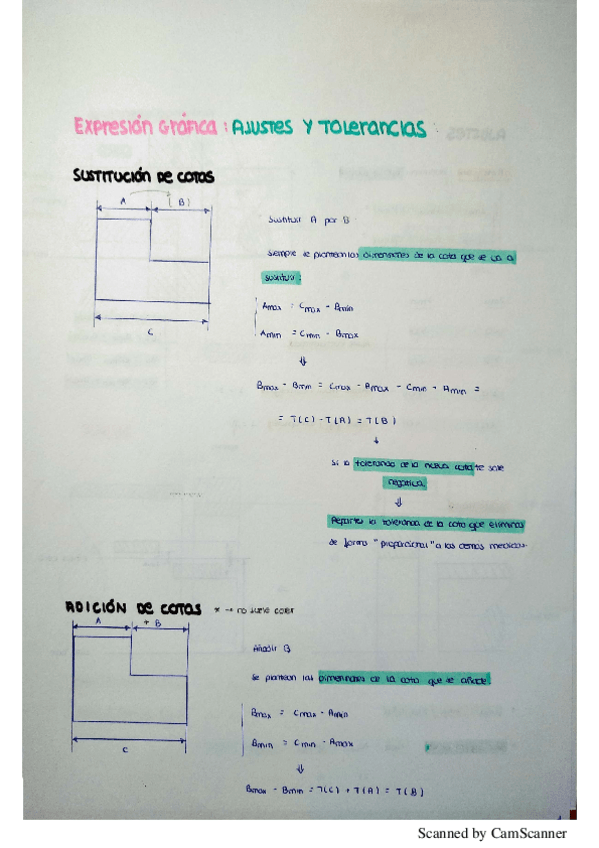 Expresión Gráfica : Ajustes y Tolerancias
Sustitución de cotas
A (B)
C
Sustituir A por B
Siempre se plantean las dimensiones de la cota que se va a
sustituir:
Amax = Cmax - Bmin
Amin = Cmin - Bmax
⇓
Bmax - Bmin = Cmax - Amax - Cmin + Amin =
= T(C) - T(A) = T(B)
↓
Si la tolerancia de la nueva cota te sale
negativa
⇓
Repartes la tolerancia de la cota que eliminas
de forma "proporcional" a las demas medidas.
Adición de cotas * → no suele caer
A + B
C
Añadir B
Se plantean las dimensiones de la cota que se añade
Bmax = Cmax - Amin
Bmin = Cmin - Amax
⇓
Bmax - Bmin = T(C) + T(A) = T(B)
Scanned by CamScanner